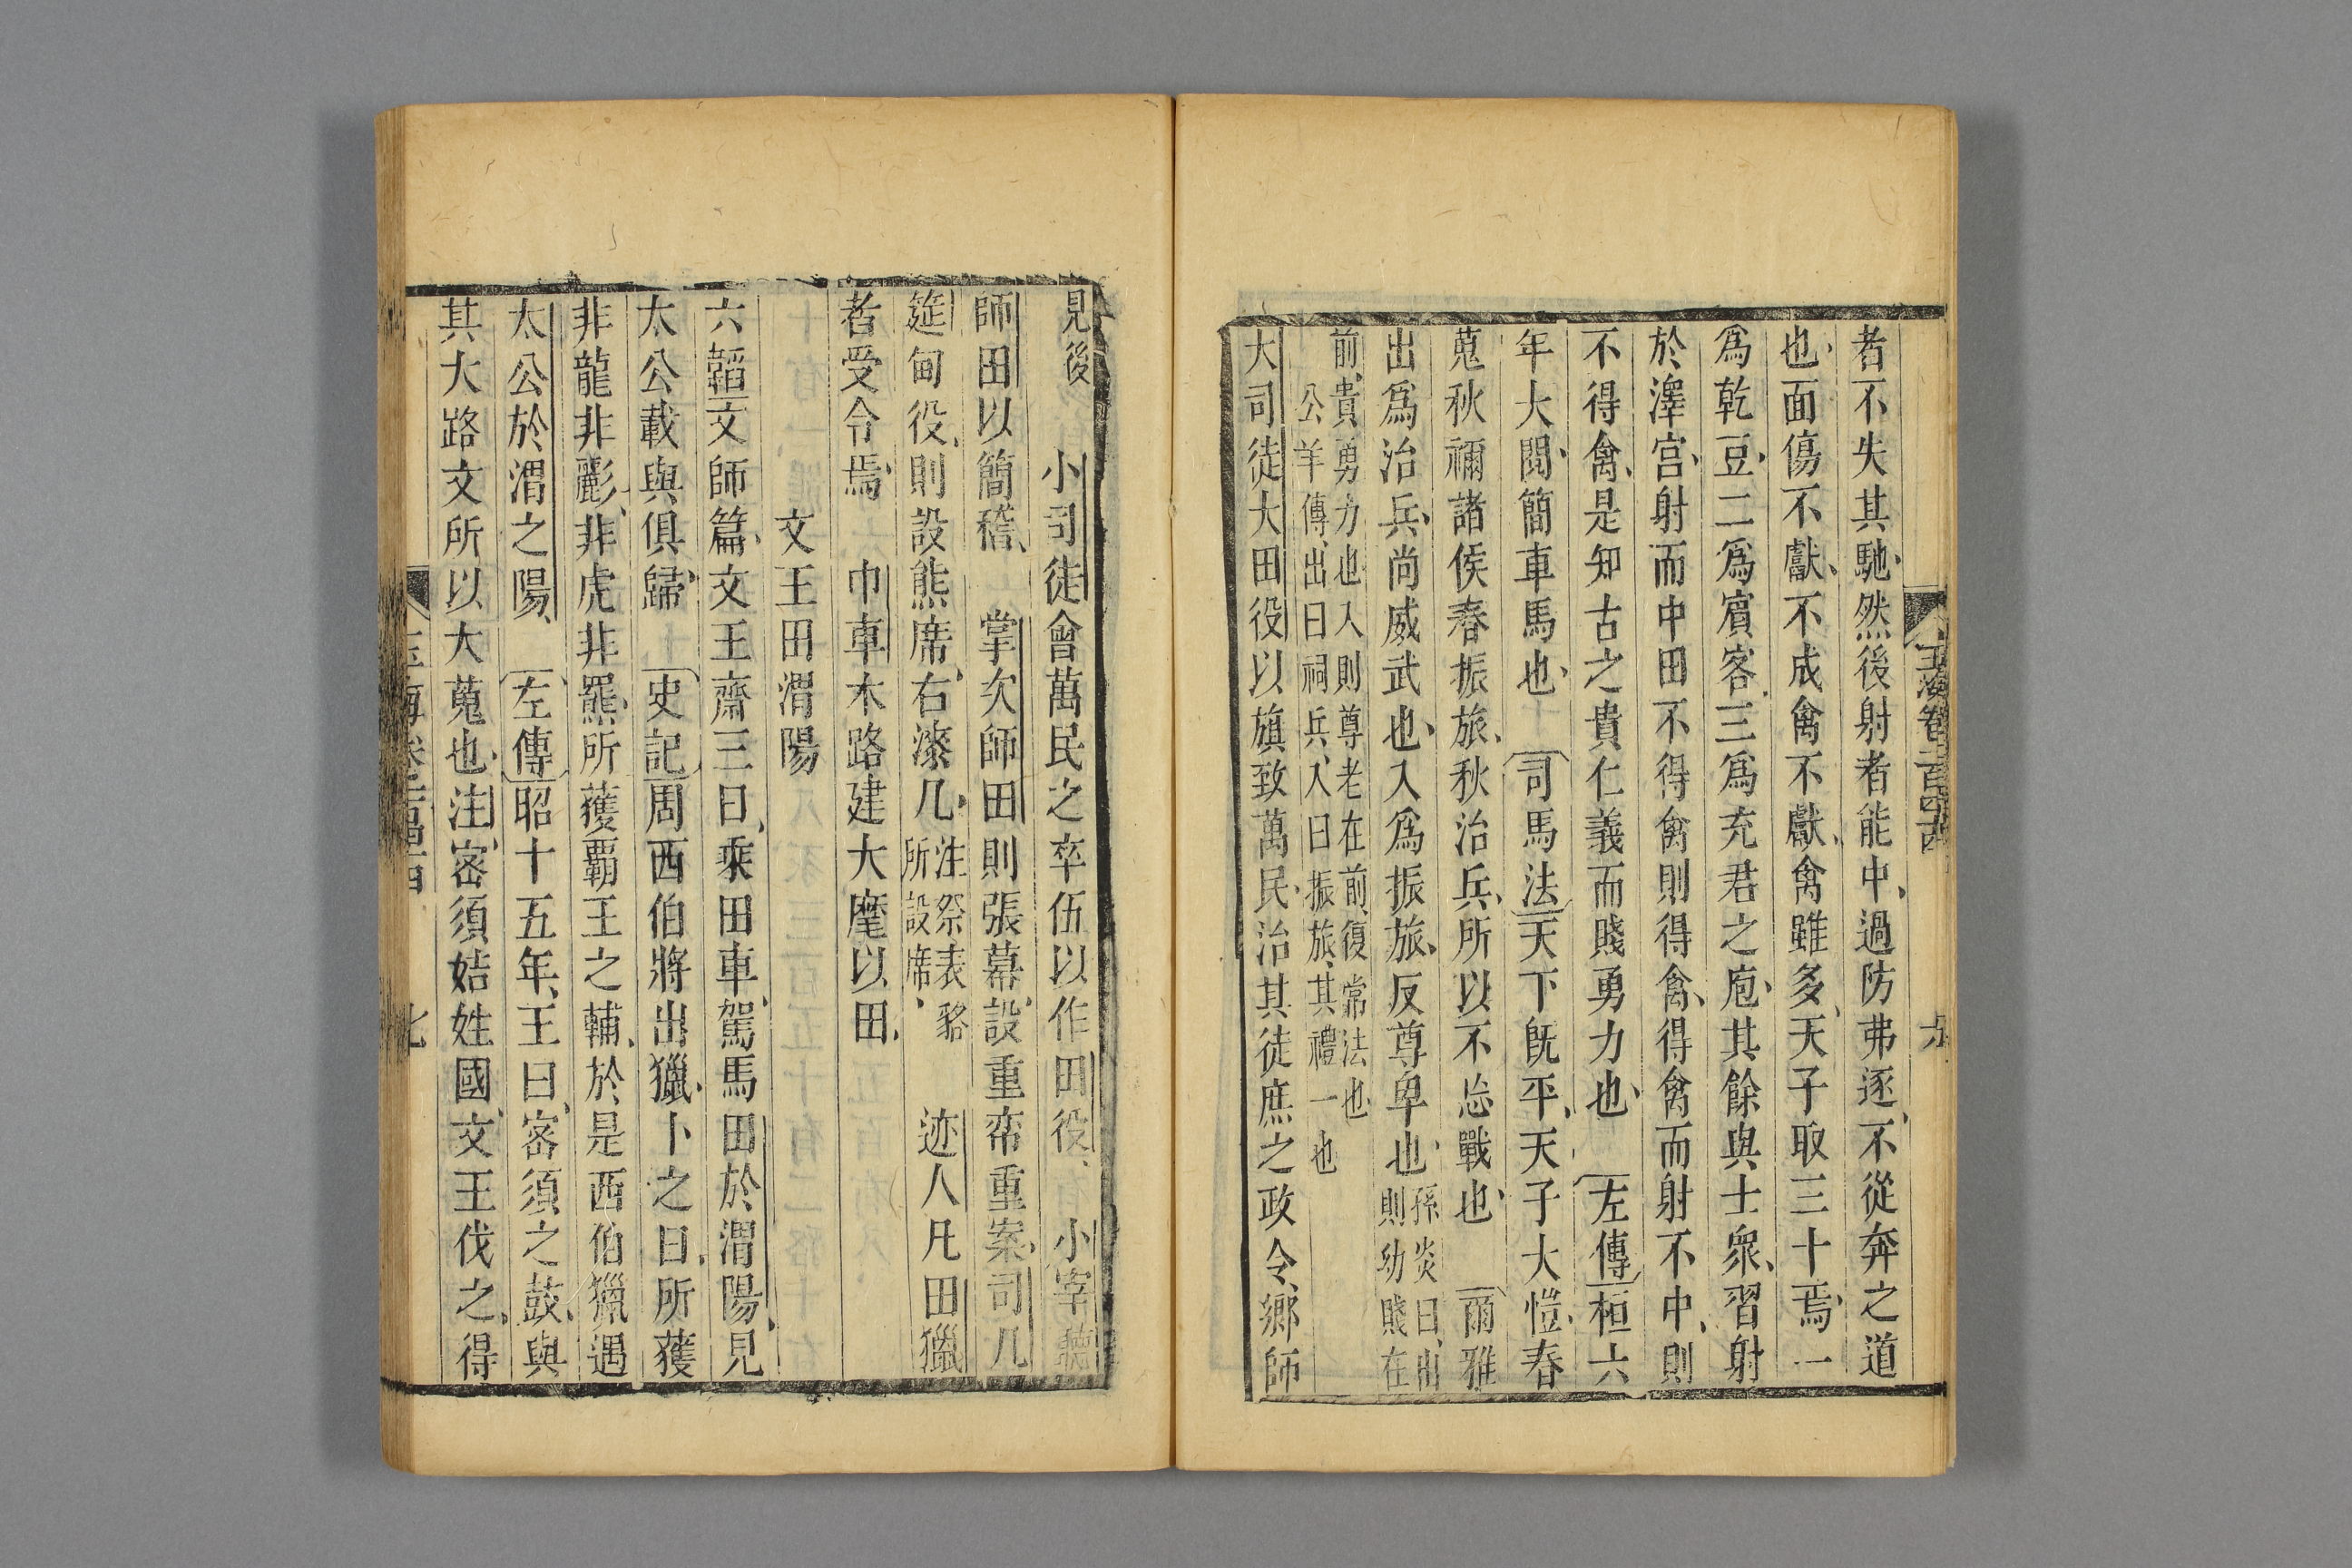 玉海卷一百四十四 六
者不失其馳然後射者能中過防弗逐不從奔之道
也面傷不獻不成禽不獻禽雖多天子取三十焉一
爲乾豆二爲賓客三爲充君之庖其餘與士衆習射
於澤宮射而中田不得禽則得禽得禽而射不中則
不得禽是知古之貴仁義而賤勇力也 左傳桓六
年大閱簡車馬也 司馬法天下旣平天子大愷春
蒐秋獮諸侯春振旅秋治兵所以不忘戰也 爾雅
出爲治兵尚威武也入爲振旅反尊卑也孫炎曰出則幼賤在
前貴勇力也入則尊老在前復常法也
公羊傳出曰祠兵入曰振旅其禮一也
大司徒大田役以旗致萬民治其徒庶之政令鄉師
見後 小司徒會萬民之卒伍以作田役 小宰聽
師田以簡稽 掌次師田則張幕設重帟重案司几
筵甸役則設熊席右漆几注祭表貉所設席 迹人凡田獵
者受令焉 巾車木路建大麾以田
文王田渭陽
六韜文師篇文王齋三日乘田車駕馬田於渭陽見
太公載與俱歸 史記周西伯將出獵卜之曰所獲
非龍非彲非虎非羆所獲覇王之輔於是西伯獵遇
太公於渭之陽 左傳昭十五年王曰密須之鼓與
其大路文所以大蒐也注密須姞姓國文王伐之得